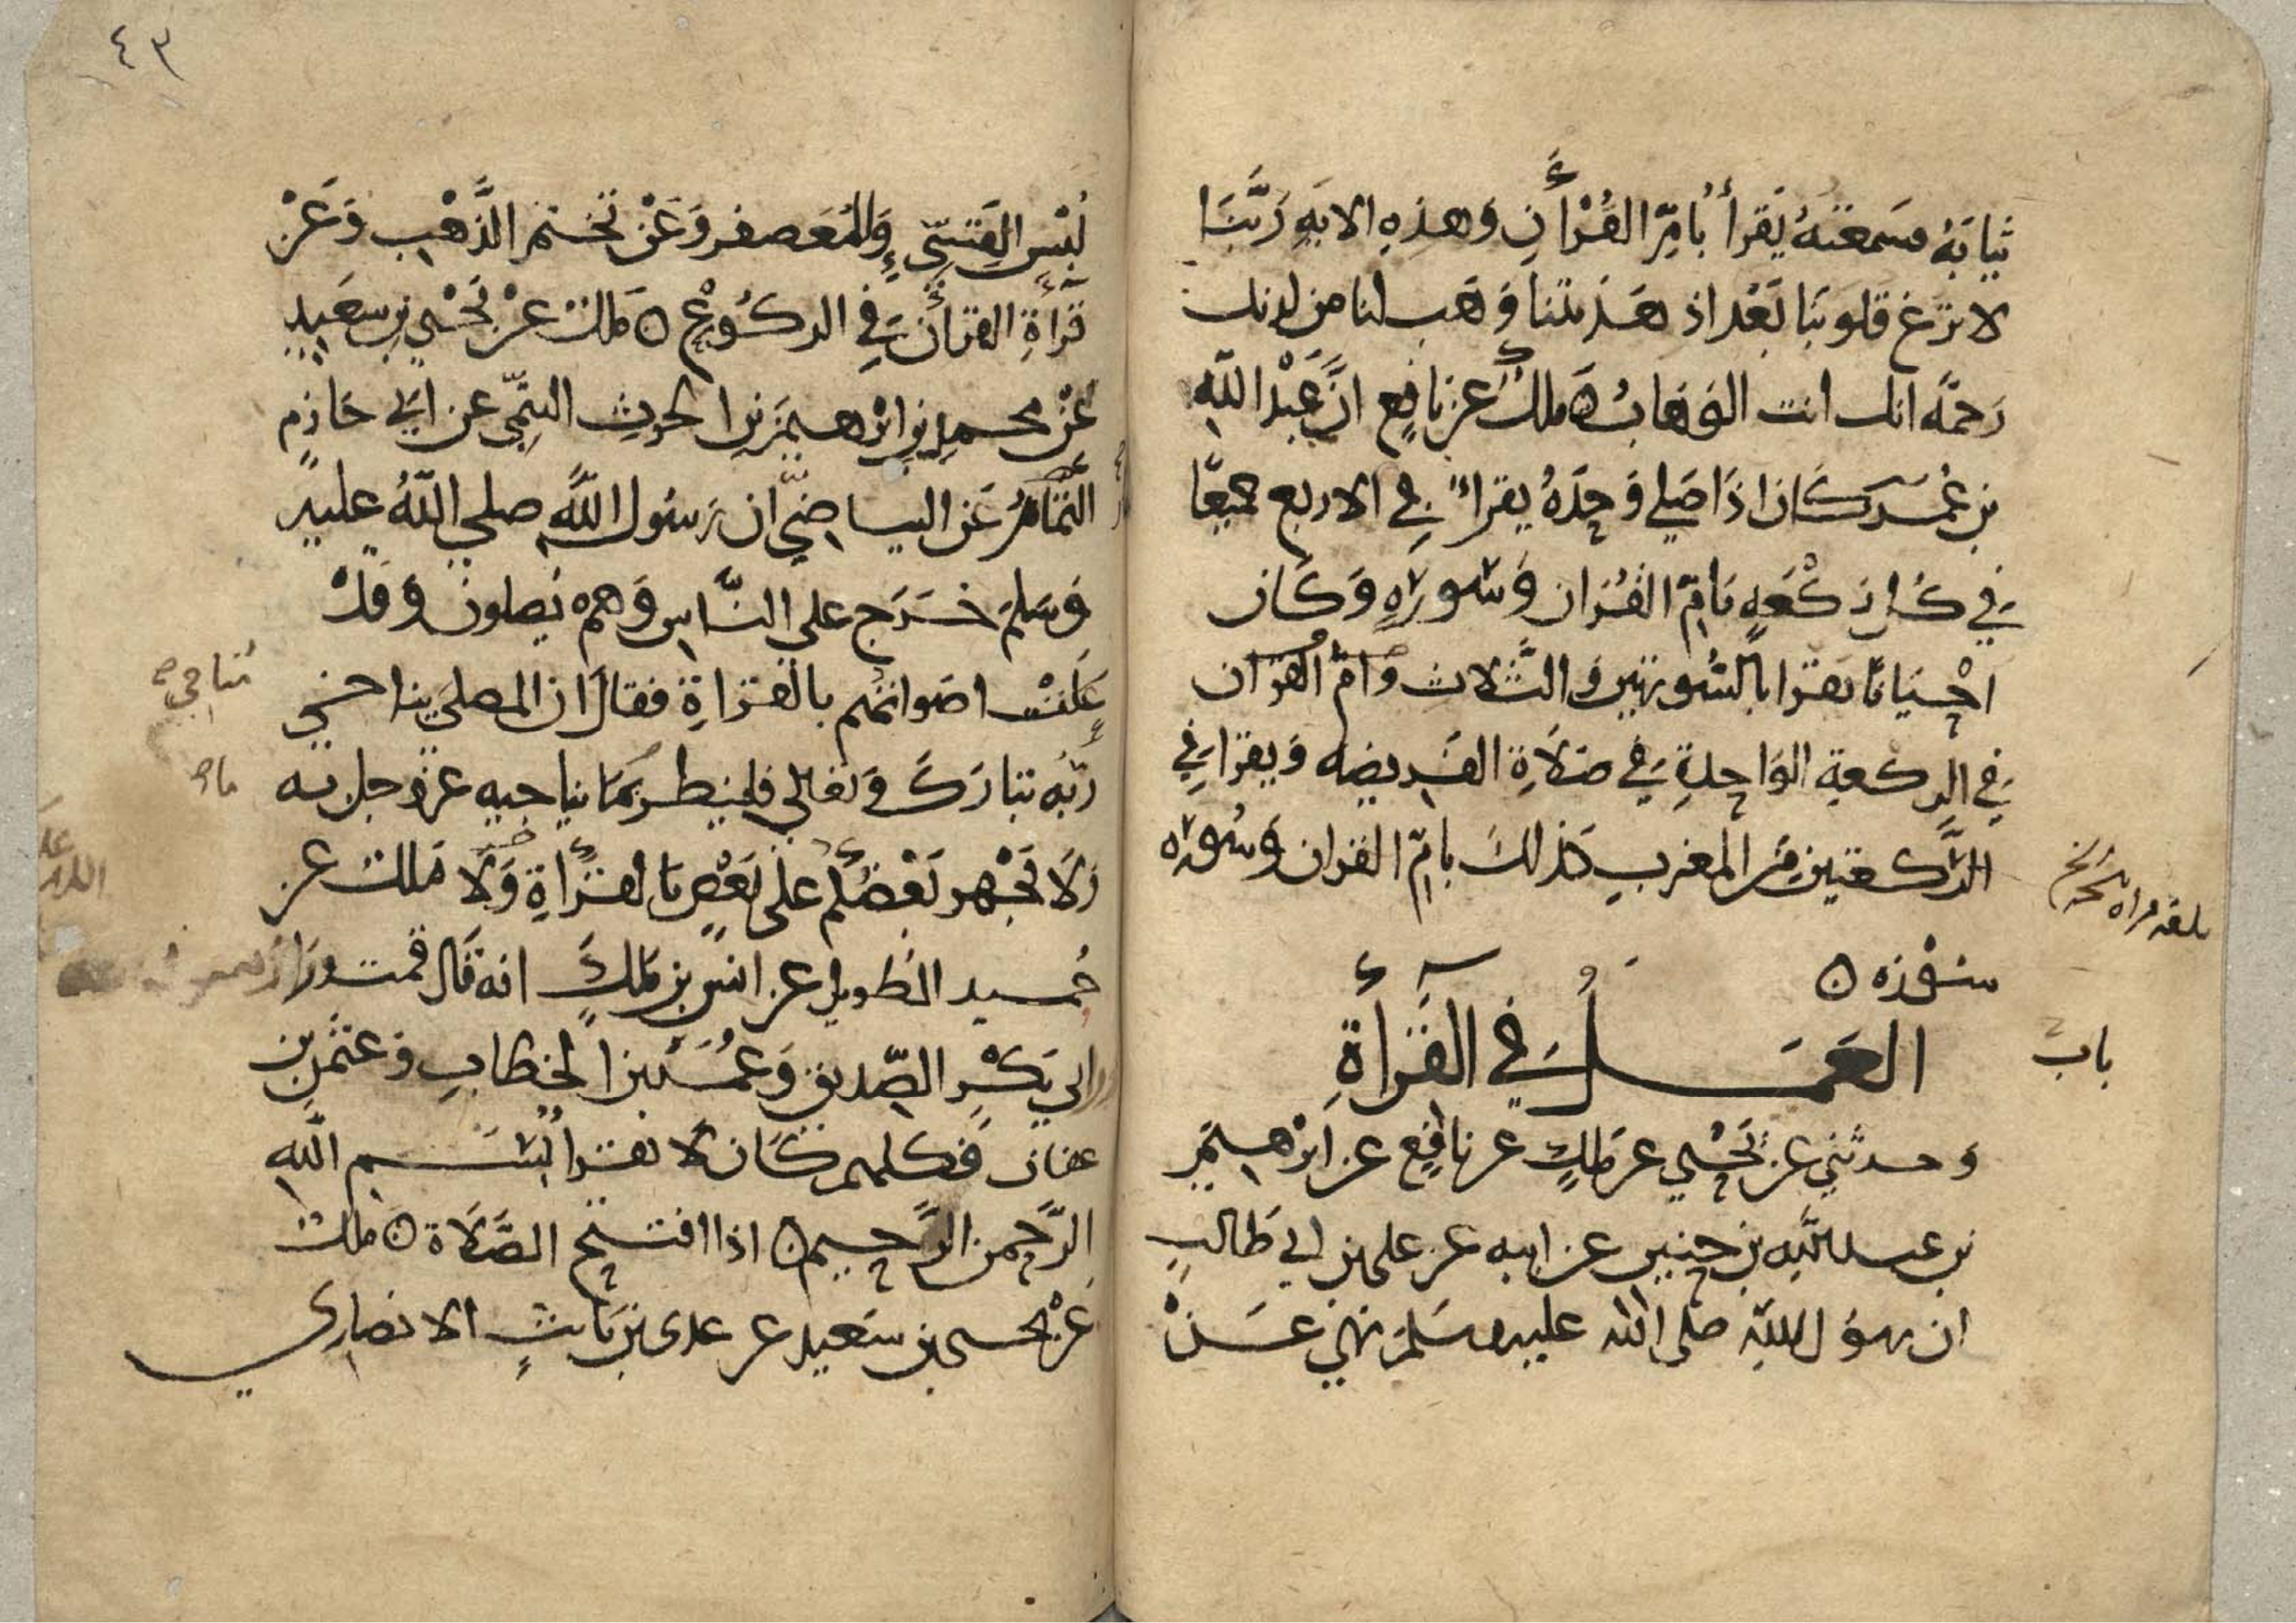 ثيابه فسمعته يقرأ بأمّ القُرْأن وهذه الايه رَبَّنَا
لا تزغ قلوبنا بَعْد اذ هديتنا وَهب لنا من لدنك
رحمة انك انت الوهابُ ملك عن نافع انَّ عَبْد الله
بن عُمر كان اذا صلي وحده يقرأ في الاربع جميعًا
في كل ركْعَه بامّ القُران وسورَه وكان
احْيانًا يقرا بالسُّورتين والثَّلاث وامّ القران
في الركعة الواحدةِ في صَلَاةِ الفَريضه ويقرا في
الرَّكعتين من المغرب كذلكَ بامّ القران وسُورَه
سُورَه
باب
العَمَل في القرأةِ
وحدثني عن يَحْيي عن مَلكٍ عن نافعٍ عن ابْرهيمَ
بن عبد اللَّهِ بن حنين عن ابيه عن علي بن ابي طَالبٍ
ان رسُول اللَّهِ صلى الله عليه وسَلمَ نهي عَنْ
٤٣
لُبْس القَسّيّ وَالمُعَصفر وَعَنْ تختم الذَّهْب وَعَنْ
قرأةِ القرأن في الركُوعْ مَلك عَنْ يَحْيي بن سَعيدٍ
عَنْ محمد بن ابْرهيمَ بن الحرثِ التيميّ عن ابي حَازم
التَّمَّارُ عَن البياضيّ ان رَسُول اللَّه صلي اللَّهُ عليه
وَسَلمَ خَرَج علي النَّاس وَهم يُصلونَ وقَدْ
عَلَتْ اصَواتهُم بالقراةِ فقالَ ان المصلي يناجي
يناجي
رَبَّه تبارَكَ وتعالي فلينظر بمَا يناجيه عز وجل به
ما
ولَا يَجْهر بَعْضُكُم علَي بَعْضٍ بالقرأةِ مَلك عن
حُميد الطويل عن انس بن مَلكٍ انه قَال قمت ورَا
ابي بَكْرٍ الصّديق وَعُمَر بن الخطابِ وعثمن بن
عفان فكلهم كَان لَا يقرا بسْم الله
الرَّحمن الرَّحيم اذا افتتح الصَّلَاة ملك
عَنْ يحيى بن سَعيد عن عدى بن ثابتٍ الانصاري